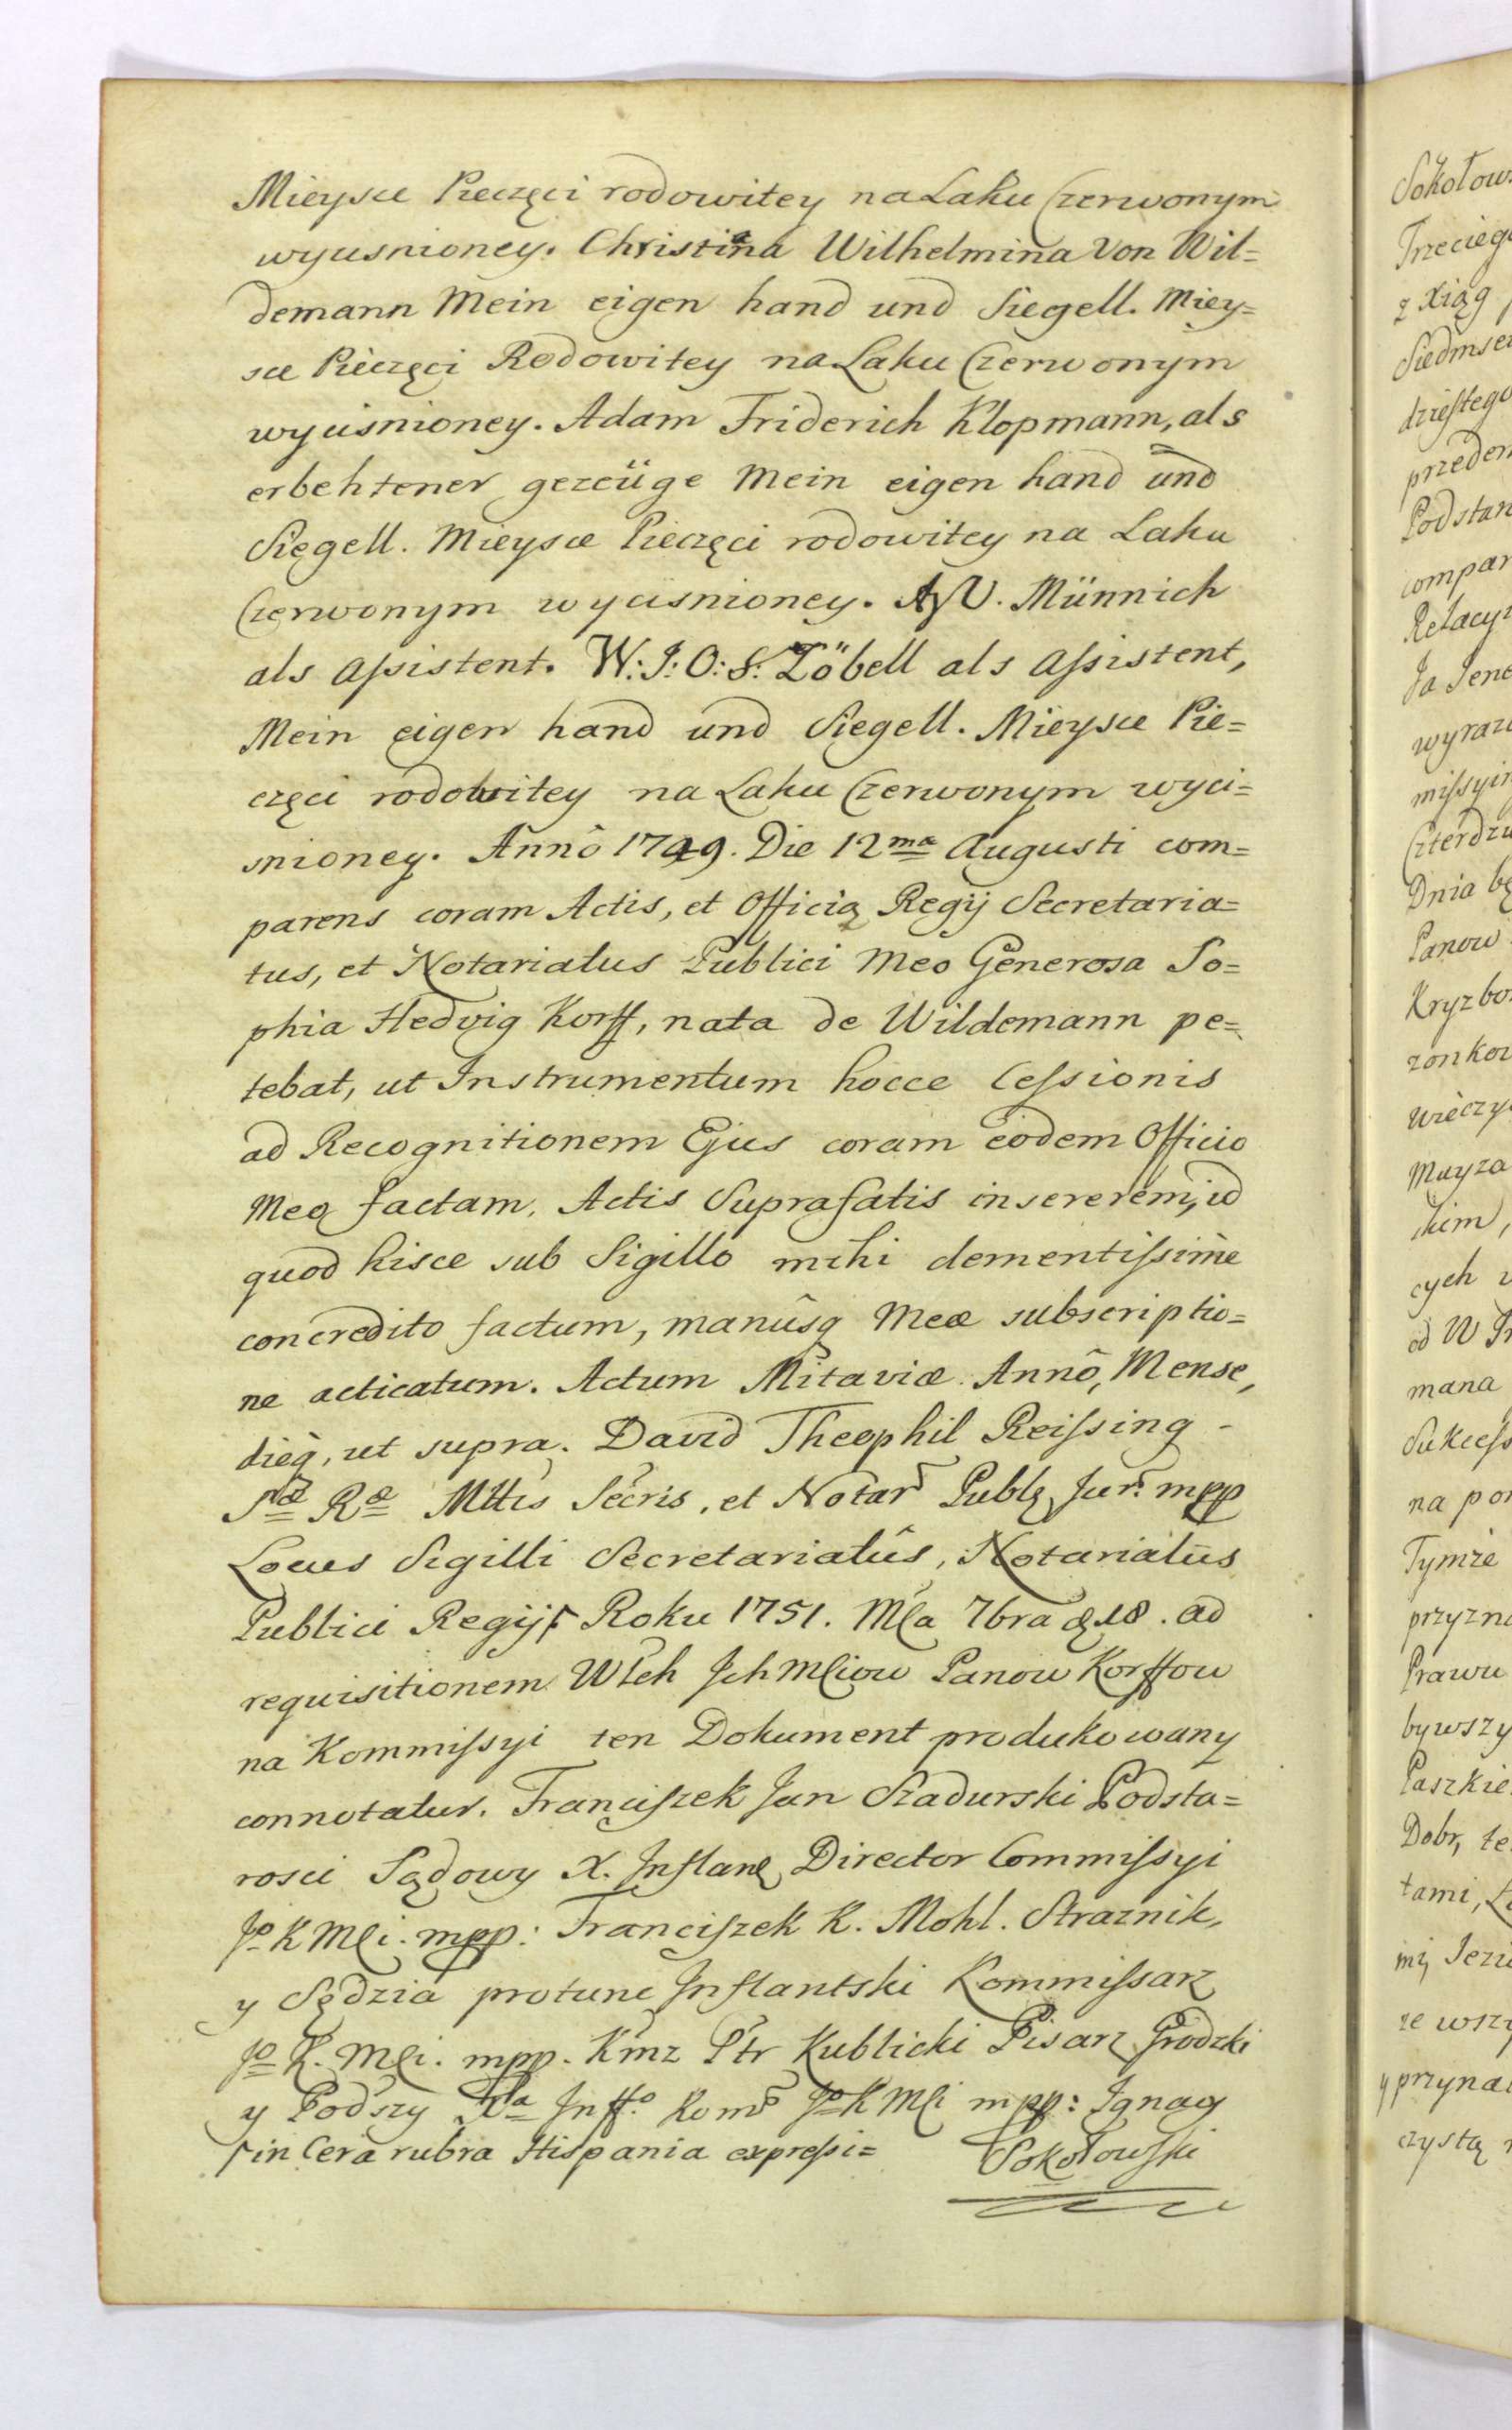 Mieysce Pieczęci rodowitey na Laku Czerwonym
wyusnioney. Christina Wilhelmina Von Wil=
demann Mein eigen hand und Siegell. Miey=
sce Pieczęci Rodowitey na Laku Czerwonym
wyciśnioney. Adam Friderich Klopmann, als
erbehtener gezeüge Mein eigen hand und
Siegell. Mieysce Pieczęci rodowitey na Laku
Czerwonym wyciśnioney. A V. Münnich
als Assistent. W: J: O: S: Zöbell als Assistent,
Mein eigen hand und Siegell. Mieysce Pie=
częci rodowitey na Laku Czerwonym wyci=
snioney. Annô 1749. Die 12ma Augusti com=
parens coram Actis, et Officio Regij Secretaria=
tus, et Notariatus Publici Meo Generosa So=
phia Hedvig Korff, nata de Wildemann pe=
tebat, ut Instrumentum hocce Cessionis
ad Recognitionem Ejus coram eodem Officio
Meo factam. Actis Suprafatis insererem, id
quod hisce sub Sigillo mihi clementissime
concredito factum, manûsq Meæ subscriptio=
ne acticatum. Actum Mitaviæ. Annô, Mense,
dieq, ut supra. David Theophil Reissing -
Sæ Ræ Mttis Secris, et Notar Publq Jur. mpp
Locus Sigilli Secretariatûs, Notariatûs
Publici Regij Roku 1751. Mca 7bra d 18. ad
requisitionem Włch Jch Mciow Panow Korffow
na Kommissyi ten Dokument produkowany
connotatur. Franciszek Jan Szadurski Podsta=
rosci Sądowy X. Inflan Director Commissyi
Jo K Mci. mpp: Franciszek K. Mohl. Straznik,
y Sędzia protunc Inflantski Kommissarz
Jo K. Mci. mpp. Kmz Ptr Kublicki Pisarz Grodzki
y Podszy Xa Inff.o Kom Jo K Mci mpp: Ignacy
in Cera rubra Hispania expressi= Sokołowski
Sokołow
Trzeciego
z Xiąg
Siedmse
dziestego
przedem
Podstar
compar
Relacyi
Ja Jene
wyraz
missyi
Czterdzi
Dnia bę
Panow
Kryzbo
zonkow
Wieczy
Mayza
skim,
cych
od W
mana
Sukcess
na po
Tymże
przyzna
Prawu
bywszy
Paszkie
Dobr, te
tami,
mi, Jezi
ze wszy
y przyna
czystą